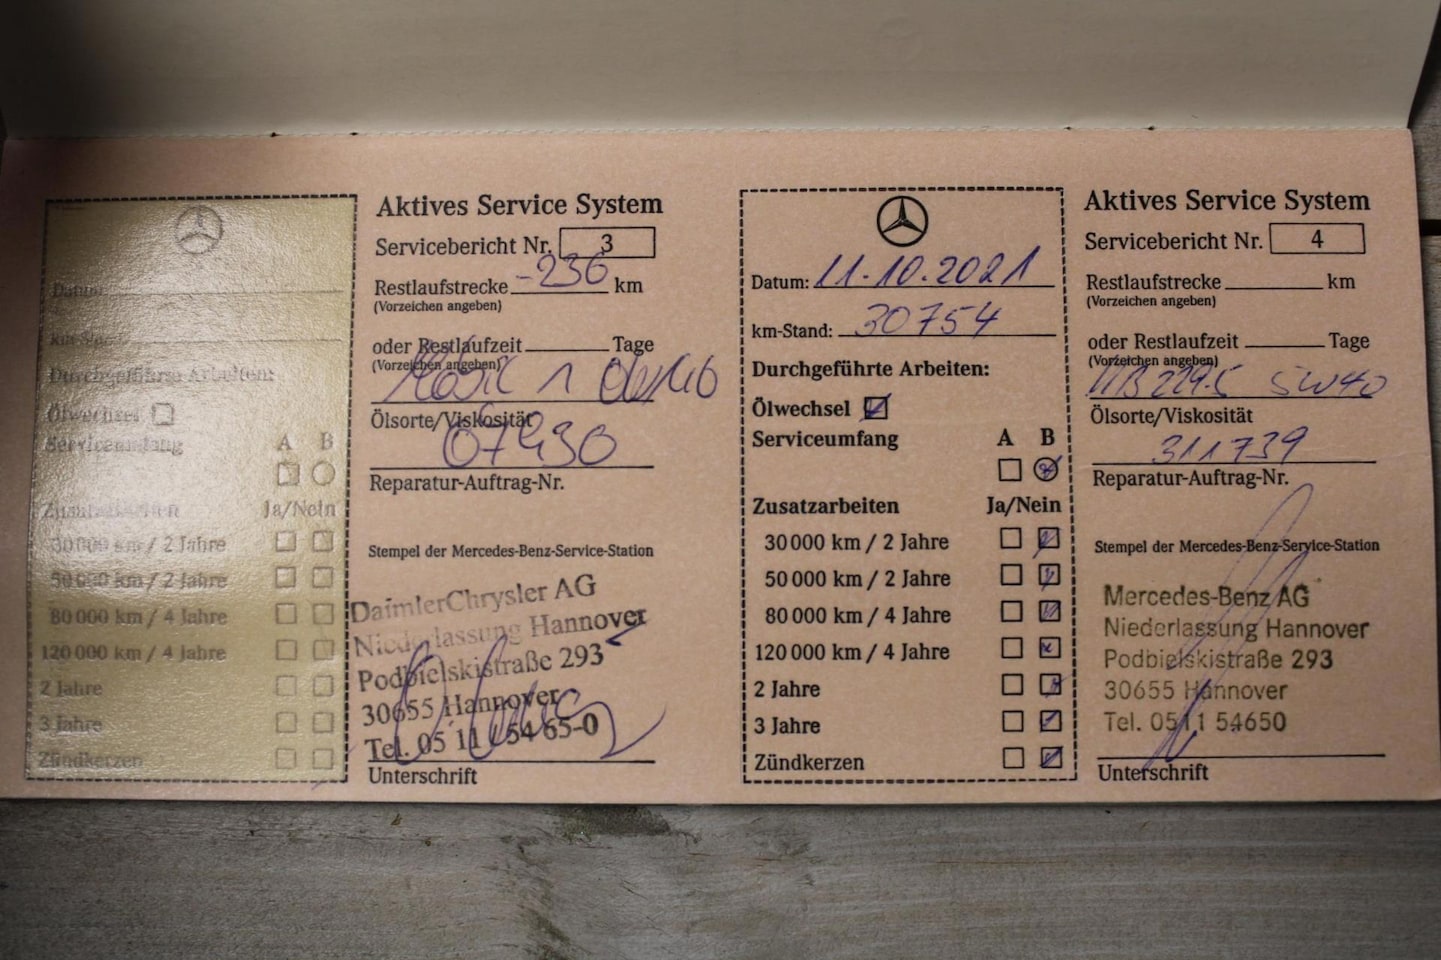 Datum:
km-Stand:
Durchgeführte Arbeiten:
Ölwechsel
Serviceumfang
A B
Zusatzarbeiten Ja/Nein
30 000 km / 2 Jahre
50 000 km / 2 Jahre
80 000 km / 4 Jahre
120 000 km / 4 Jahre
2 Jahre
3 Jahre
Zündkerzen
Aktives Service System
Servicebericht Nr. 3
Restlaufstrecke -236 km
(Vorzeichen angeben)
oder Restlaufzeit Tage
(Vorzeichen angeben)
Ölsorte/Viskosität
07430
Reparatur-Auftrag-Nr.
Stempel der Mercedes-Benz-Service-Station
DaimlerChrysler AG
Niederlassung Hannover
Podbielskistraße 293
30655 Hannover
Tel. 05 11 / 54 65-0
Unterschrift
Datum: 11.10.2021
km-Stand: 30754
Durchgeführte Arbeiten:
Ölwechsel
Serviceumfang A B
Zusatzarbeiten Ja/Nein
30 000 km / 2 Jahre
50 000 km / 2 Jahre
80 000 km / 4 Jahre
120 000 km / 4 Jahre
2 Jahre
3 Jahre
Zündkerzen
Aktives Service System
Servicebericht Nr. 4
Restlaufstrecke km
(Vorzeichen angeben)
oder Restlaufzeit Tage
(Vorzeichen angeben)
MB 229.5 5W40
Ölsorte/Viskosität
311739
Reparatur-Auftrag-Nr.
Stempel der Mercedes-Benz-Service-Station
Mercedes-Benz AG
Niederlassung Hannover
Podbielskistraße 293
30655 Hannover
Tel. 0511 54650
Unterschrift